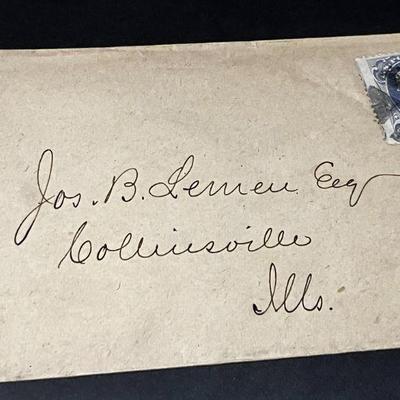 Jos. B. Lemen Esq
Collinsville
Ills.